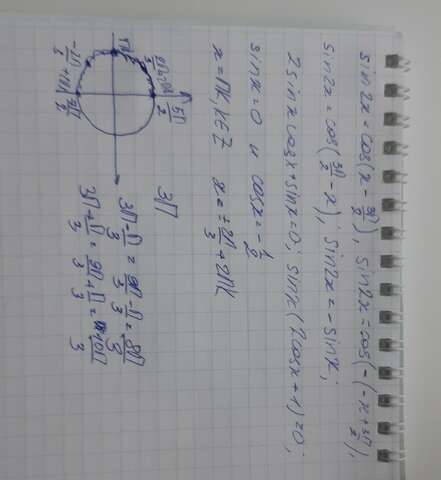 sin2x = cos(x - 3π/2), sin2x = cos(-(-x + 3π/2)),
sin2x = cos(3π/2 - x), sin2x = -sinx;
2sinx cosx + sinx = 0; sinx(2cosx + 1) = 0;
sinx = 0 и cosx = -1/2
x = πk, k∈Z x = ±2π/3 + 2πk
3π
3π - π/3 = 9π - π/3 = 8π/3
3π + π/3 = 9π + π/3 = 10π/3
5π/2